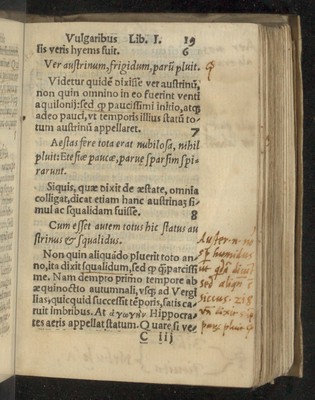 Vulgaribus Lib. I. 19
sis veris hyems fuit. 6
Ver austrinum, frigidum, parũ pluit.
Videtur quidẽ dixisse ver austrinũ,
non quin omnino in eo fuerint venti
aquilonij: sed ꝙ paucissimi initio, atꝙ
adeo pauci, vt temporis illius statũ to-
tum austrinũ appellaret. 7
Aestas fere tota erat nubilosa, nihil
pluit: Etesiæ paucæ, paruę sparsim spi-
rarunt.
Siquis, quæ dixit de æstate, omnia
colligat, dicat etiam hanc austrinaʒ si-
mul ac squalidam fuisse. 8
Cum esset autem totus hic status au
strinus & squalidus.
Non quin aliquãdo pluerit toto an-
no, ita dixit squalidum, sed ꝙ ꝙparcissi
me. Nam dempto primo tempore ab
æquinoctio autumnali, vsꝙ ad Vergi
lias, quicquid successit tẽporis, satis ca-
ruit imbribus. At ἀγωγὴν Hippocra-
tes aeris appellat statum. Quare si ve-
C iij
Auster
humidus
sed
siccus
dixit